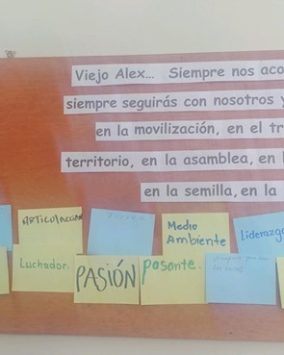 Viejo Alex... Siempre nos aco
siempre seguirás con nosotros y
en la movilización, en el tr
territorio, en la asamblea, en l
en la semilla, en la
ARTICULACIÓN
Medio
Ambiente
liderazgo
Luchador.
PASIÓN
pasante.